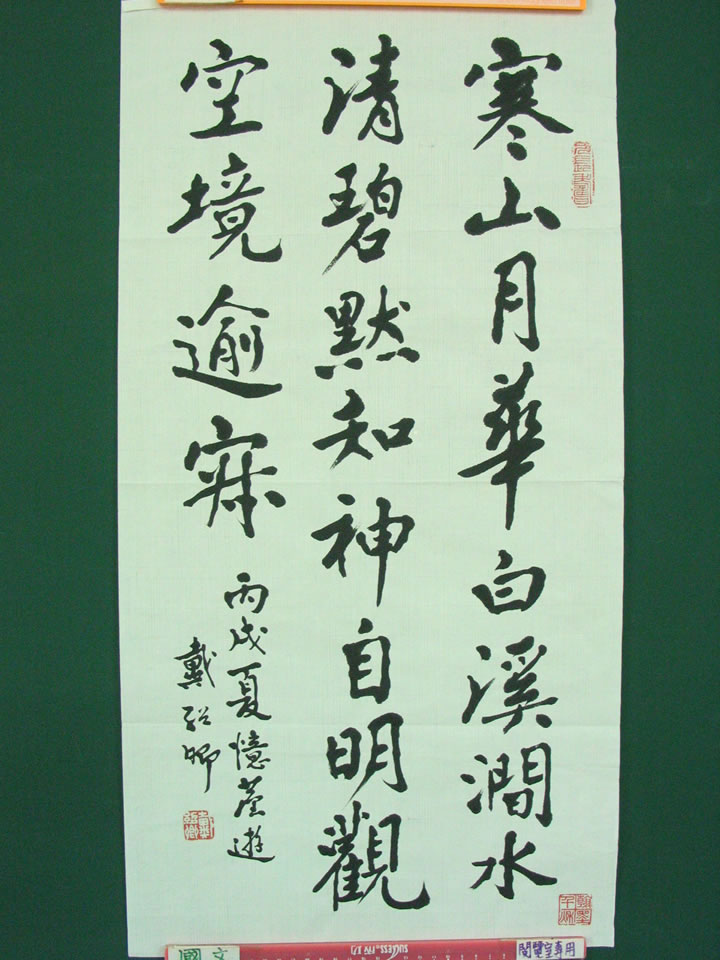 寒山月華白溪澗水
清碧默知神自明觀
空境逾寂
丙戌夏憶舊遊
戴
國文
SUCCESS
閱覽室專用